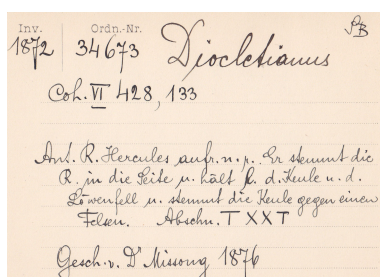 Inv. Ordn.-Nr.
1872 34673 Diocletianus
Coh. VI 428, 133
Ant. R. Hercules aufr. n. r. Er stemmt die
R. in die Seite u. hält l. d. Keule u. d.
Löwenfell u. stemmt die Keule gegen einen
Felsen. Abschn. T XX T
Gesch. v. Dr Missong 1876